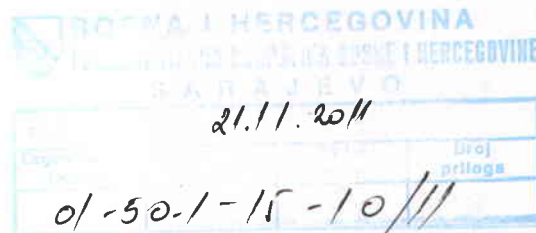 BOSNA I HERCEGOVINA
BOSNE I HERCEGOVINE
SARAJEVO
21.11.2011
Broj
priloga
01-50-1-15-10/11